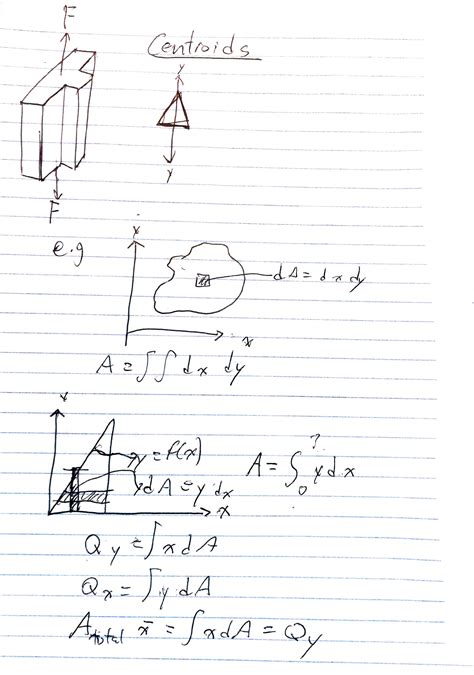 F
Centroids
y
y
F
e.g
dA = dx dy
x
A = ∫∫ dx dy
y = f(x)
A = ∫₀^? y dx
dA = y dx
x
Q_y = ∫ x dA
Q_x = ∫ y dA
A_total x̄ = ∫ x dA = Q_y